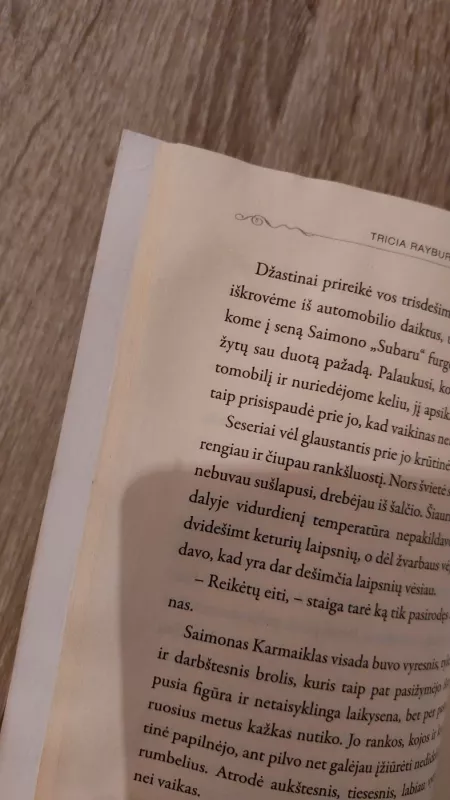 TRICIA RAYBUR
Džastinai prireikė vos trisdešim
iškrovėme iš automobilio daiktus,
kome į seną Saimono „Subaru“ furg
žytų sau duotą pažadą. Palaukusi, ko
tomobilį ir nuriedėjome keliu, jį apsik
taip prisispaudė prie jo, kad vaikinas ne
Seseriai vėl glaustantis prie jo krūtinė
rengiau ir čiupau rankšluostį. Nors švietė
nebuvau sušlapusi, drebėjau iš šalčio. Šiaur
dalyje vidurdienį temperatūra nepakildav
dvidešimt keturių laipsnių, o dėl žvarbaus vė
davo, kad yra dar dešimčia laipsnių vėsiau.
– Reikėtų eiti, – staiga tarė ką tik pasirodęs
nas.
Saimonas Karmaiklas visada buvo vyresnis,
ir darbštesnis brolis, kuris taip pat pasižymėjo
pusia figūra ir netaisyklinga laikysena, bet per
ruosius metus kažkas nutiko. Jo rankos, kojos ir
tinė papilnėjo, ant pilvo net galėjau įžiūrėti nedid
rumbelius. Atrodė aukštesnis, tiesesnis, labiau
nei vaikas.